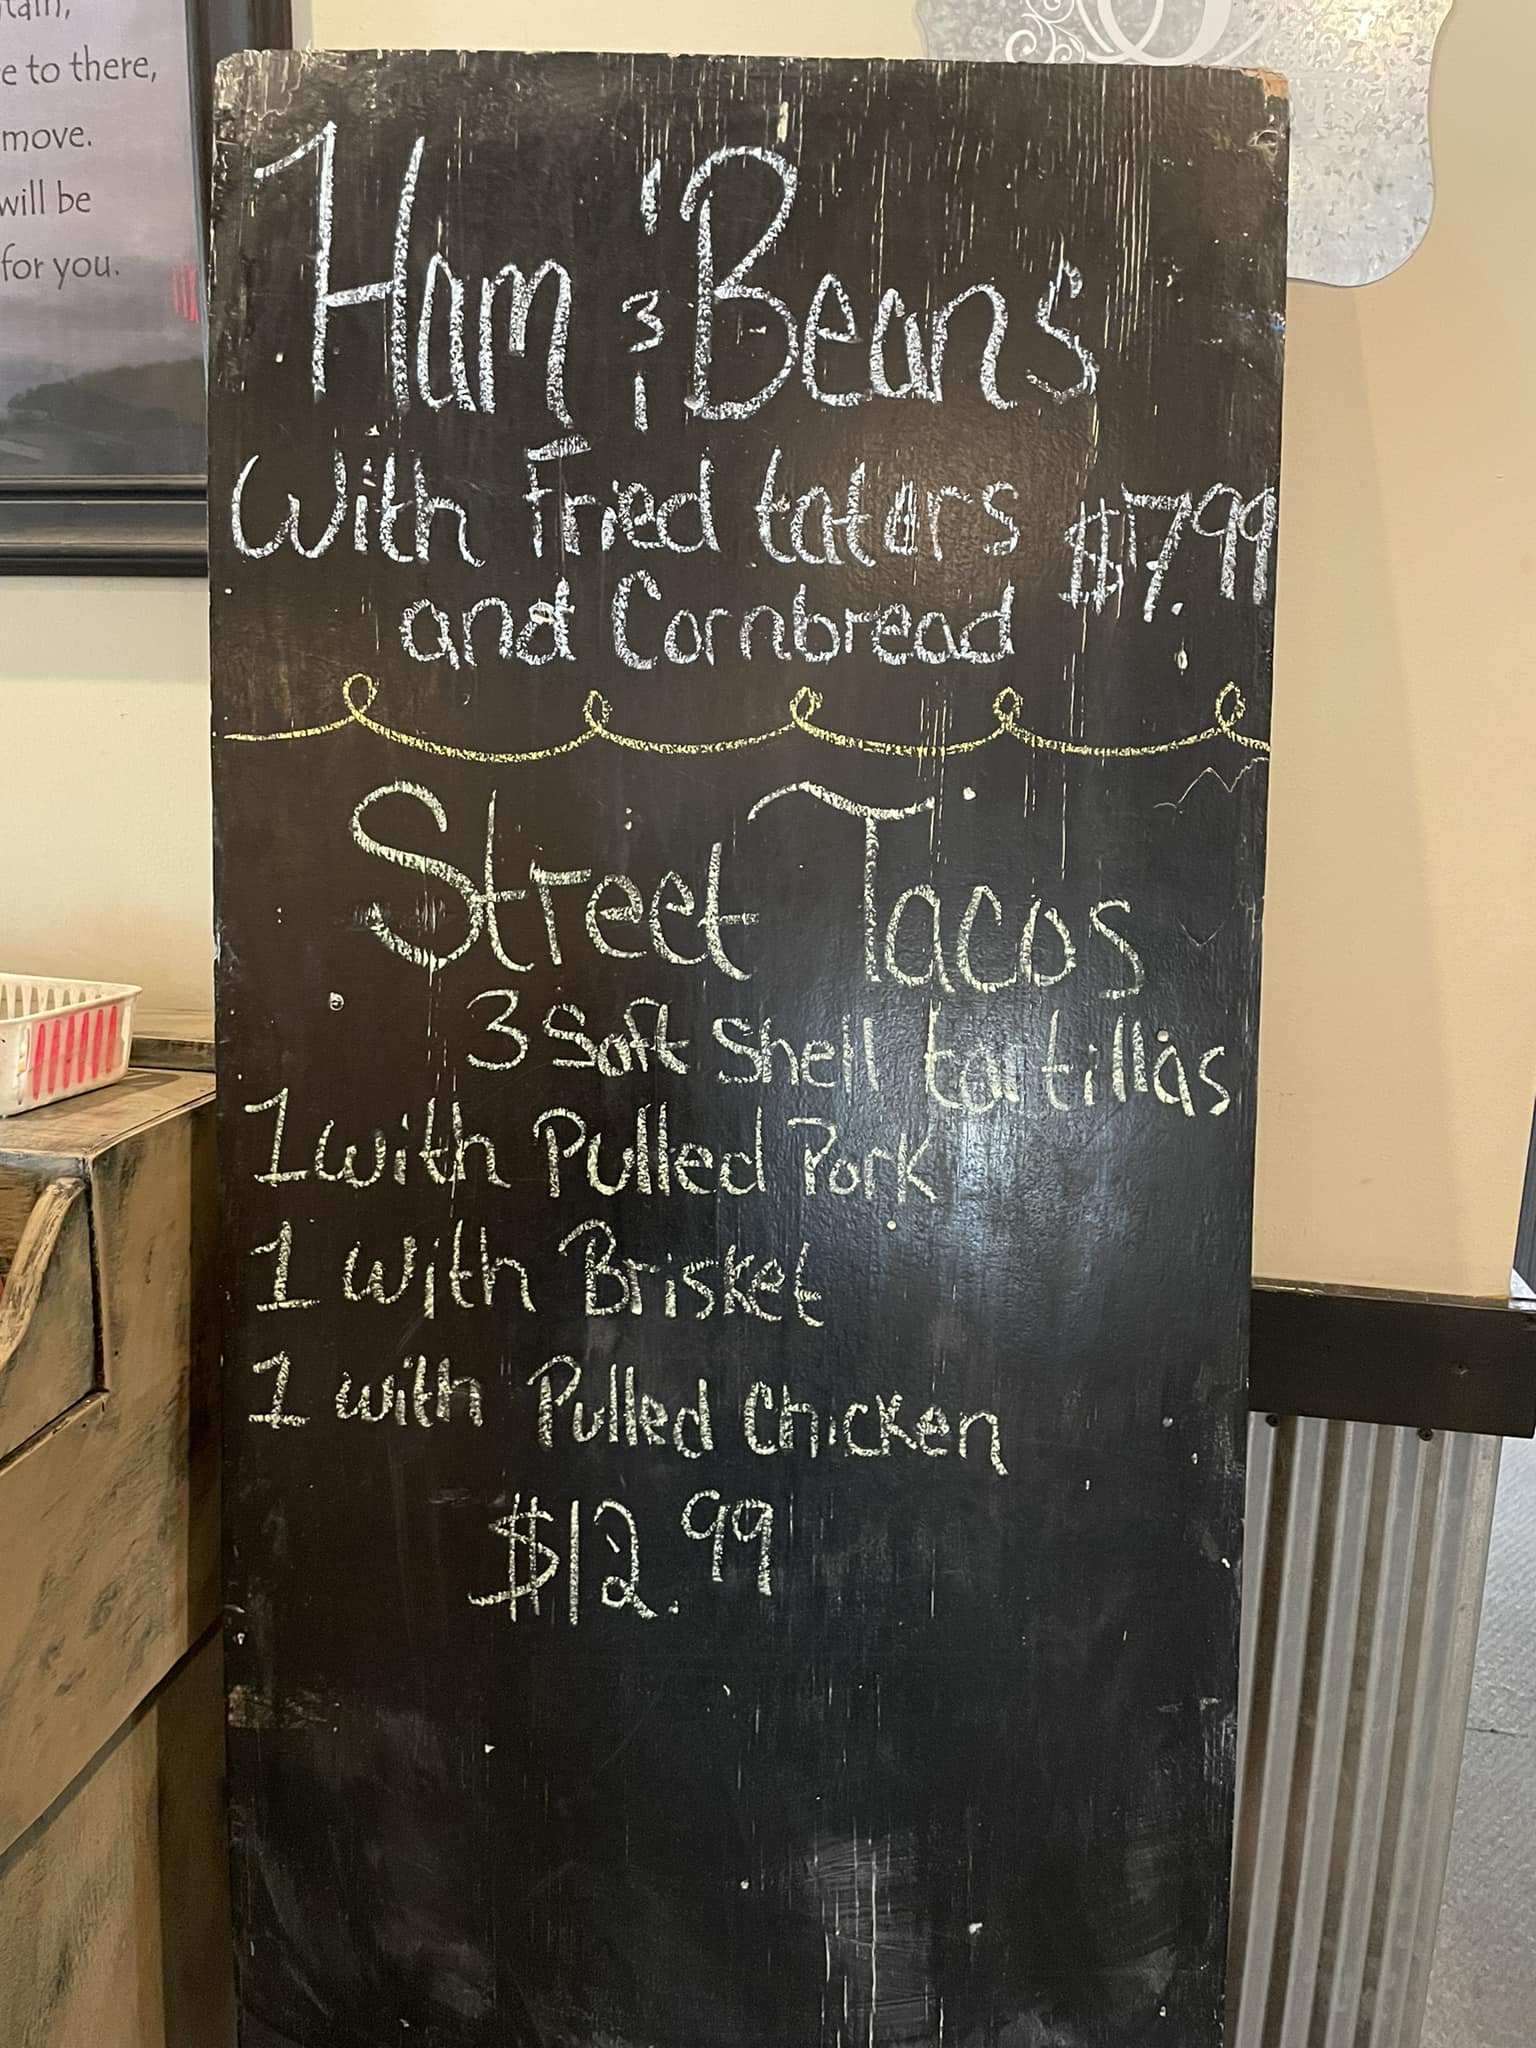 tain,
e to there,
move.
will be
for you.
Ham & Beans
With Fried taters $7.99
and Cornbread
Street Tacos
3 Soft Shell tortillas
1 with Pulled Pork
1 with Brisket
1 with Pulled Chicken
$12.99